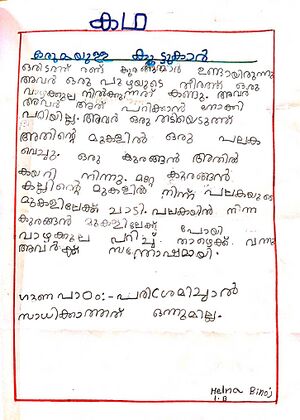 കഥ
ഒരുമയുള്ള കൂട്ടുകാർ
ഒരിടത്ത് രണ്ട് കുരങ്ങന്മാർ ഉണ്ടായിരുന്നു
അവർ ഒരു പുഴയുടെ തീരത്ത് ഒരു
വാഴക്കുല നിൽക്കുന്നത് കണ്ടു. അവർ
അവർ അത് പറിക്കാൻ നോക്കി
പറ്റിയില്ല. അവർ ഒരു തടിയെടുത്ത്
അതിന്റെ മുകളിൽ ഒരു പലക
വെച്ചു. ഒരു കുരങ്ങൻ അതിൽ
കയറി നിന്നു. മറ്റേ കുരങ്ങൻ
കല്ലിന്റെ മുകളിൽ നിന്ന് പലകയുടെ
മുകളിലേക്ക് ചാടി. പലകയിൽ നിന്ന
കുരങ്ങൻ മുകളിലേക്ക് പോയി
വാഴക്കുല പറിച്ച് താഴേക്ക് വന്നു
അവർക്ക് സന്തോഷമായി.
ഗുണപാഠം:- പരിശ്രമിച്ചാൽ
സാധിക്കാത്തത് ഒന്നുമില്ല.
Helna Binoj
1.B